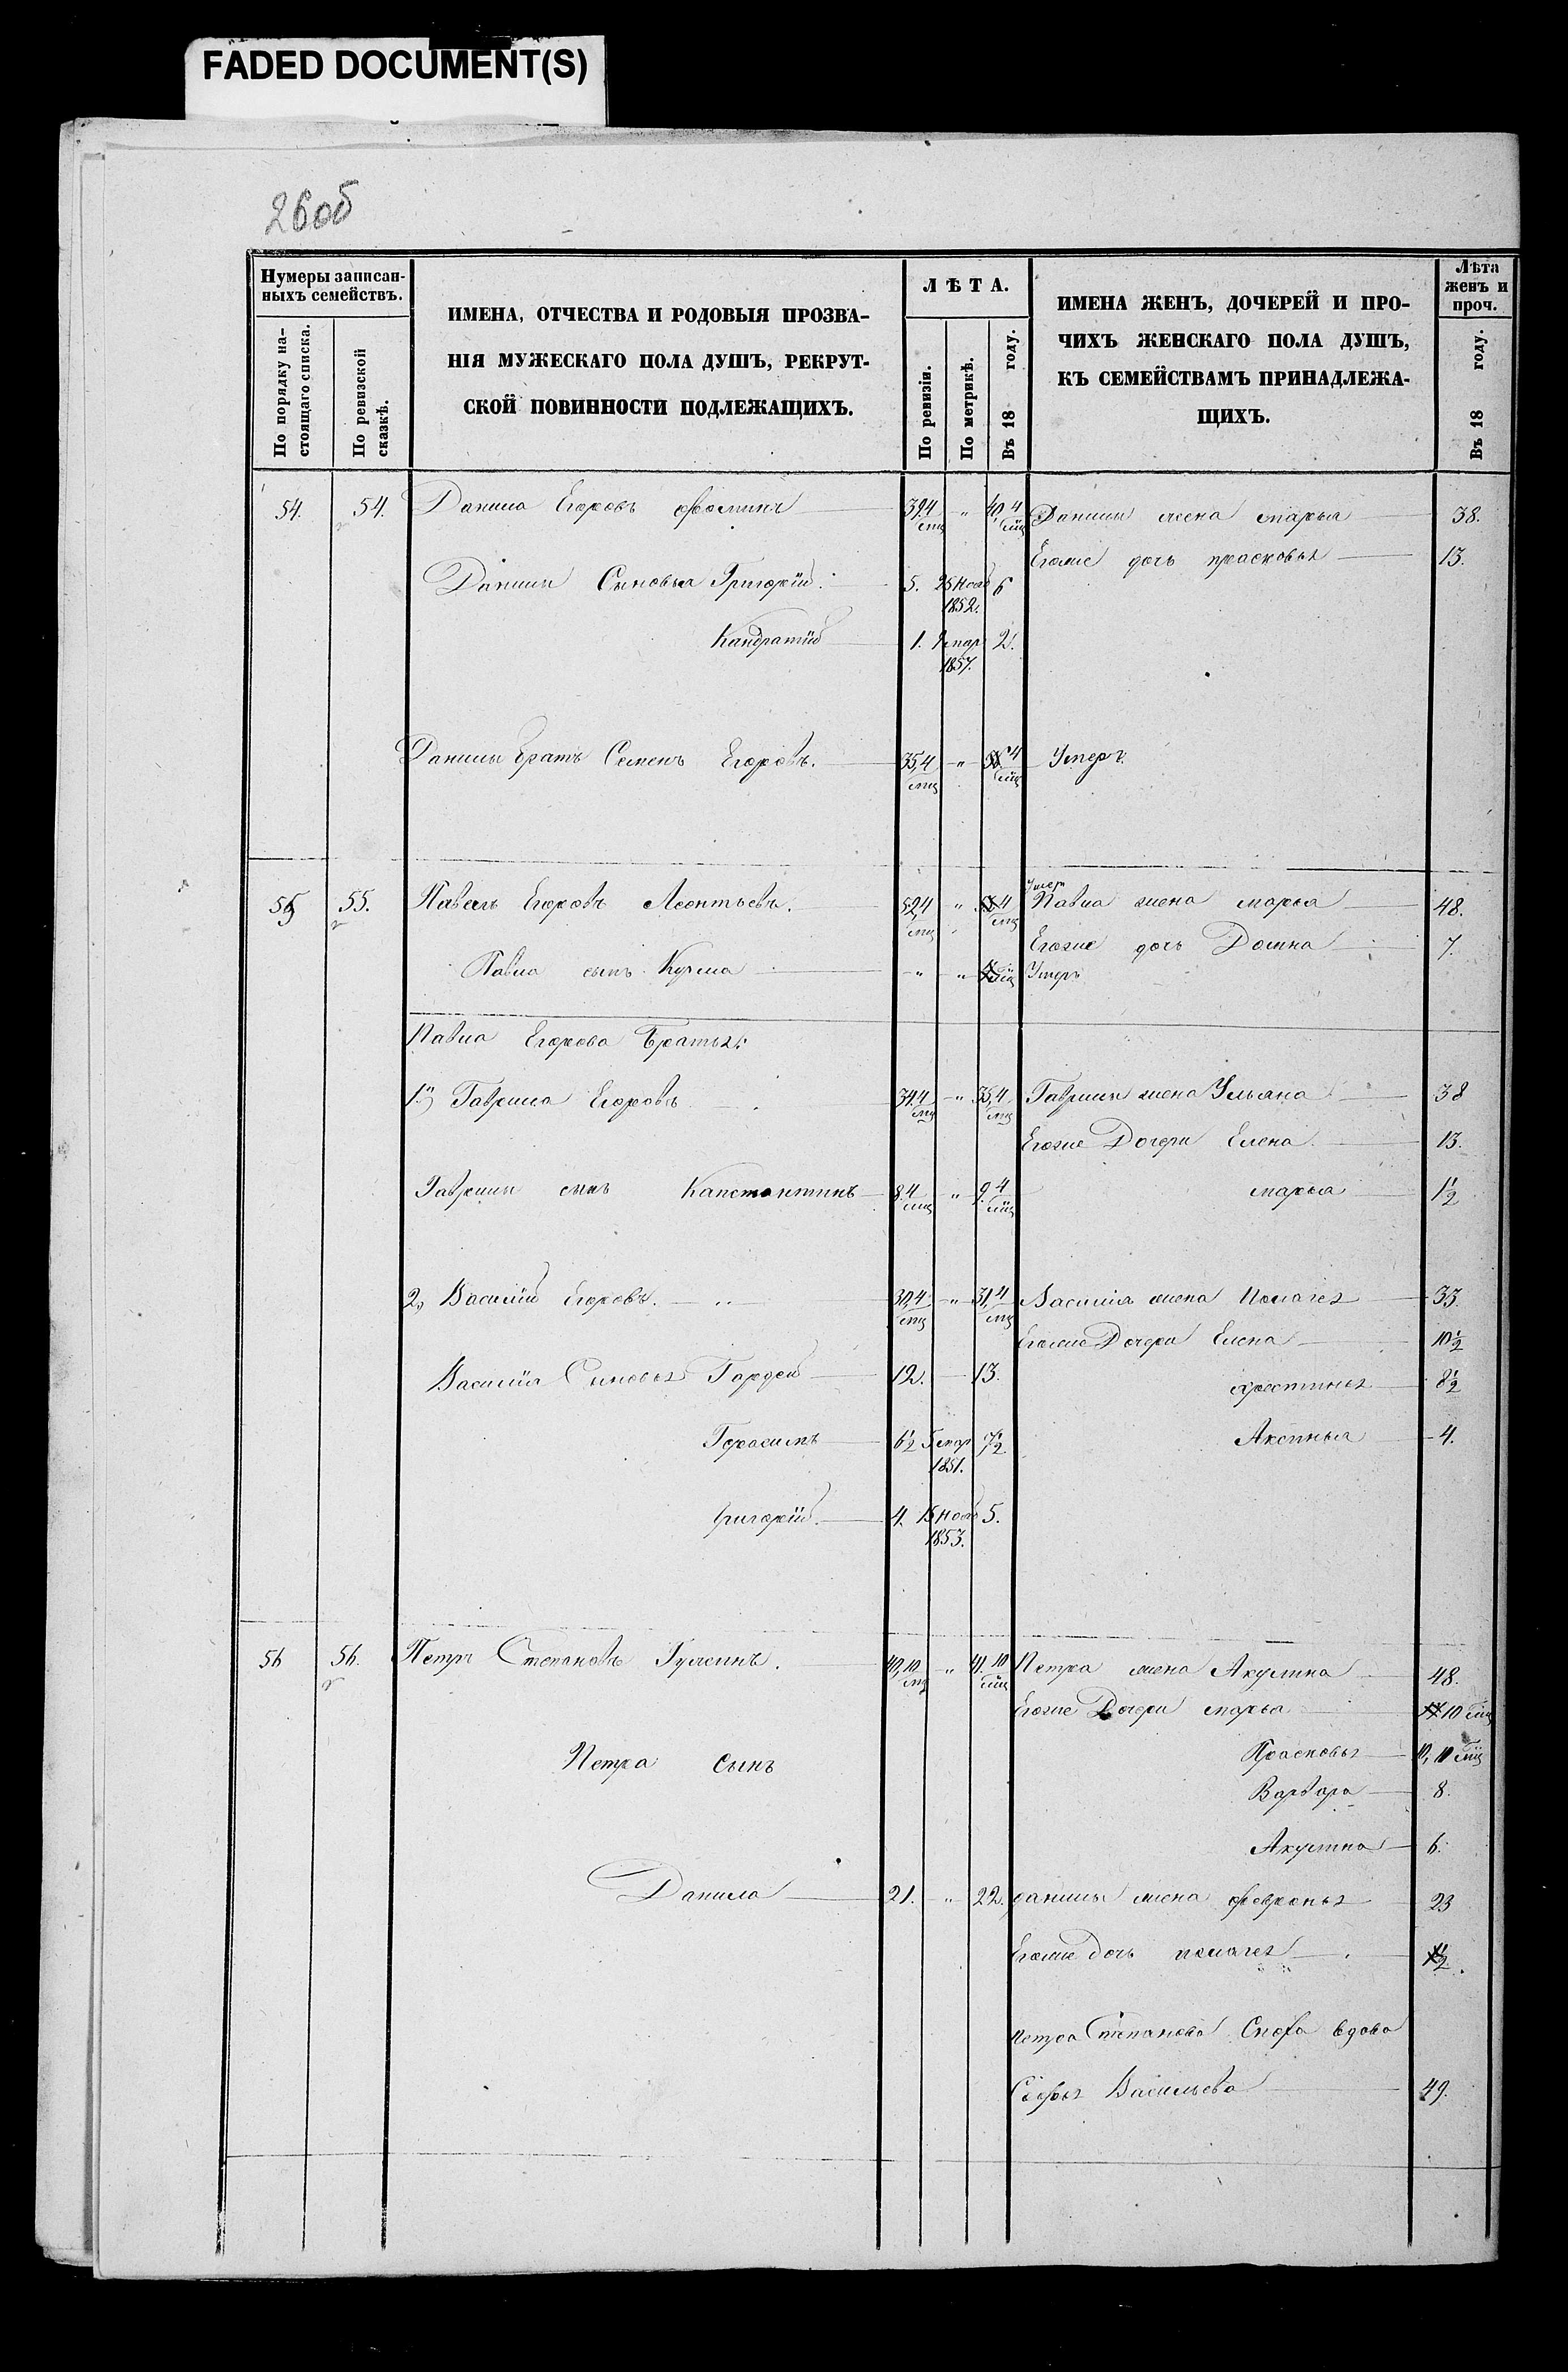 FADED DOCUMENT(S)
26об
Нумеры записан-
ныхъ семействъ.
По порядку на-
стоящаго списка.
По ревизской
сказкѣ.
ИМЕНА, ОТЧЕСТВА И РОДОВЫЯ ПРОЗВА-
НІЯ МУЖЕСКАГО ПОЛА ДУШЪ, РЕКРУТ-
СКОЙ ПОВИННОСТИ ПОДЛЕЖАЩИХЪ.
ЛѢТА.
По ревизіи.
По метрикѣ.
Въ 18 году.
ИМЕНА ЖЕНЪ, ДОЧЕРЕЙ И ПРО-
ЧИХЪ ЖЕНСКАГО ПОЛА ДУШЪ,
КЪ СЕМЕЙСТВАМЪ ПРИНАДЛЕЖА-
ЩИХЪ.
Лѣта
женъ и
проч.
Въ 18 году.
54. 54. Данила Егоровъ 39,4 мц " 40,4 мц Данилы жена марья 38.
Егоже дочь прасковья 13.
Данилы Сыновья Григорій. 5. 25 Нояб 1852. 6
Кандратій 1. мар 1857. 2.
Данилы братъ Семенъ Егоровъ. 35,4 мц " Умеръ.
55 55. Павелъ Егоровъ Леонтьевъ. 52,4 мц " Умеръ Павла жена марья 48.
Егоже дочь Домна 7.
Павла сынъ Кузма " " Умеръ
Павла Егорова Братья:
1й) Гаврила Егоровъ 34,4 мц " 35,4 мц Гаврилы жена Ульяна 38
Егоже Дочери Елена 13.
Гаврилы сынъ Канстантинъ 8,4 мц " 9,4 мц марья 1½
2, Василій Егоровъ. 30,4 мц " 31,4 мц Василія жена Полагея 33.
Егоже Дочери Елена 10½
Василія Сыновья Гордей 12. 13. хрестинья 8½
Герасимъ 6½ 5 мар 1851. 7½ Аксинья 4.
григорій. 4. 15 нояб 1853. 5.
56 56. Петръ Степановъ 40,10 мц " 41,10 мц Петра жена Акулина 48.
Егоже Дочери марья 10 мц
Петра Сынъ Прасковья 10, 10 мц
Варвара 8.
Акулина 6.
Данила 21. " 22. данилы жена февронья 23
Егоже дочь полагея
петра Степанова Сноха вдова
Софья Васильева 49.